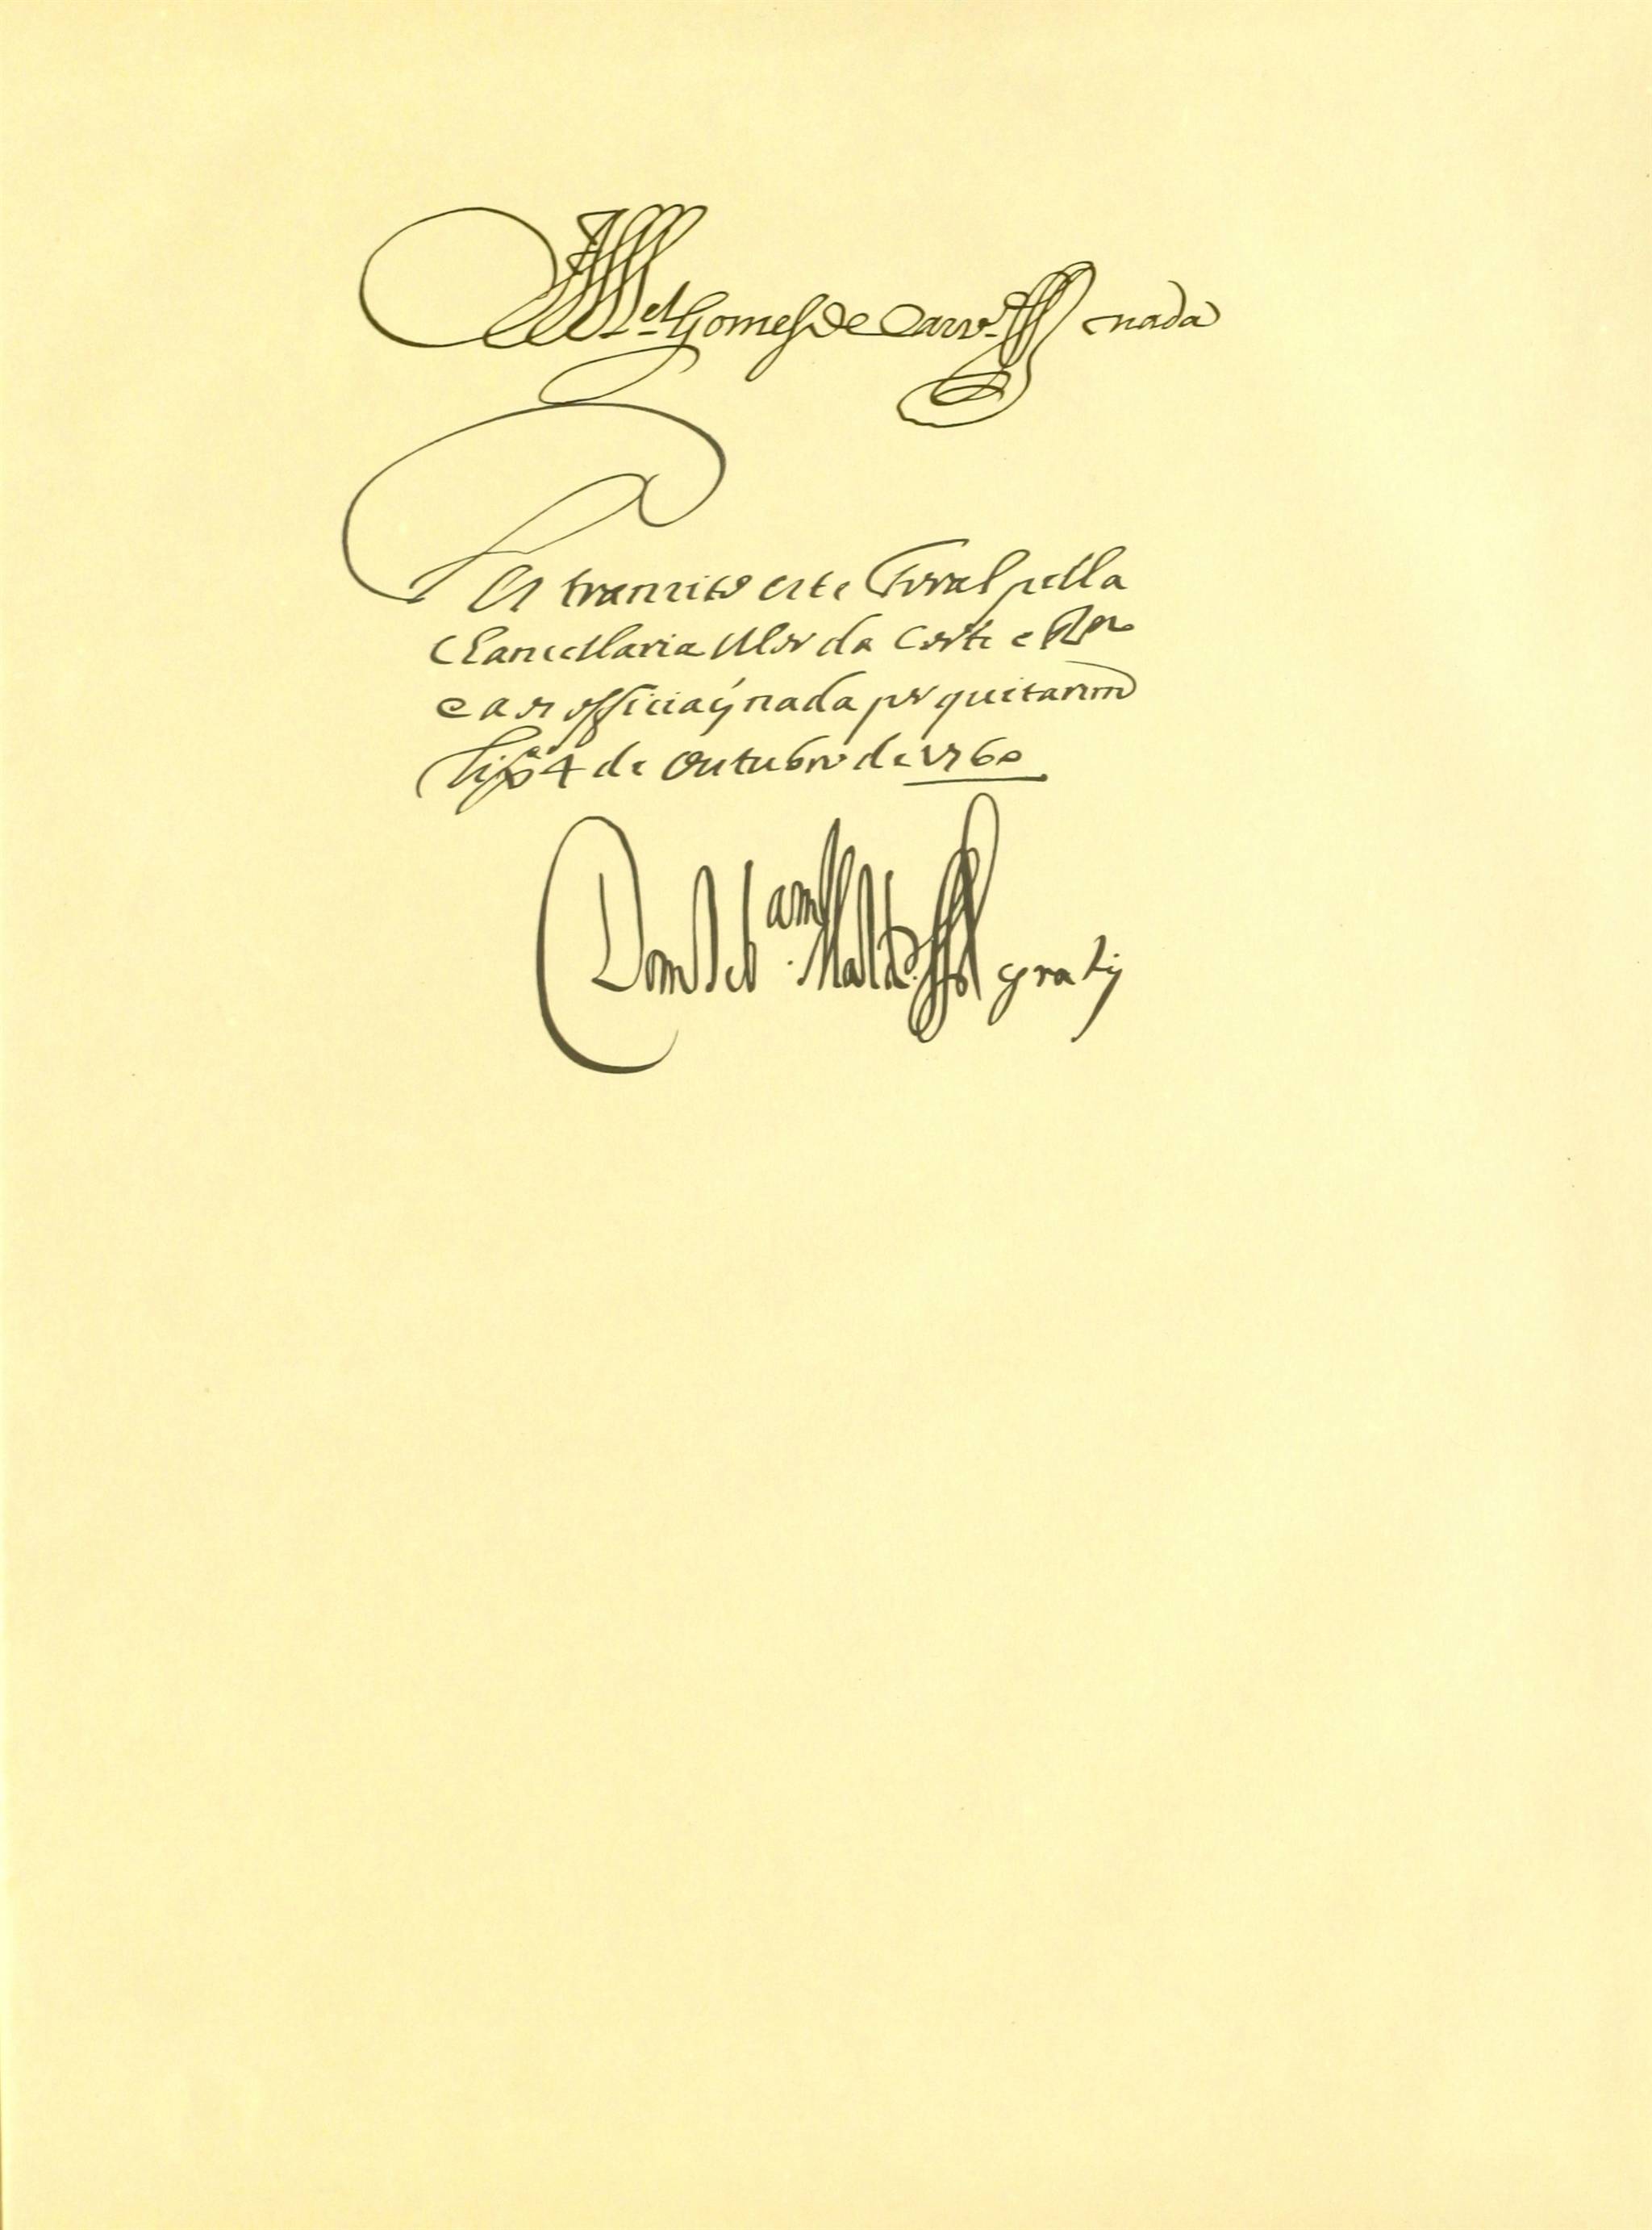 M.el Gomes de Carv.o nada
Et tranzito este Foral pella
Chancellaria Mor da Corte e Rn.o
e aos officiaẏ nada por quitarem
Lix.a 4 de Outubro de 1760
Dom Seb.am Mald.o gratis